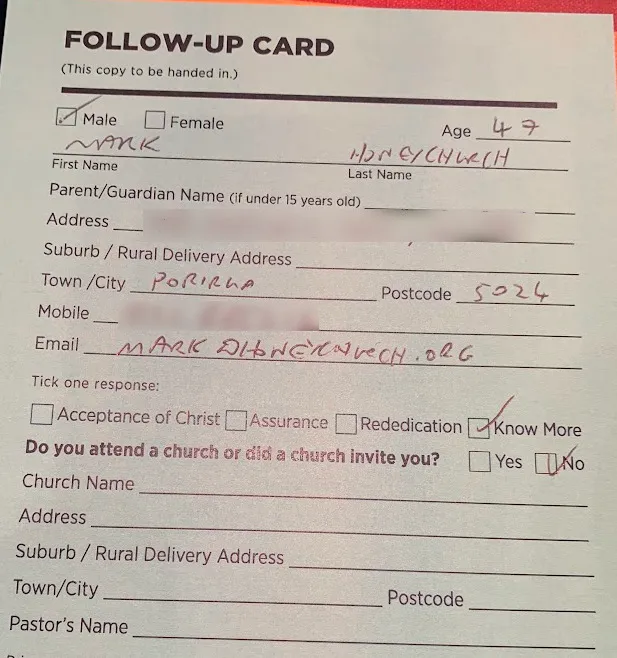 FOLLOW-UP CARD
(This copy to be handed in.)
Male Female Age 47
MARK HONEYCHURCH
First Name Last Name
Parent/Guardian Name (if under 15 years old)
Address
Suburb / Rural Delivery Address
Town /City PORIRUA Postcode 5024
Mobile
Email MARK@HONEYCHURCH.ORG
Tick one response:
Acceptance of Christ Assurance Rededication Know More
Do you attend a church or did a church invite you? Yes No
Church Name
Address
Suburb / Rural Delivery Address
Town/City Postcode
Pastor's Name